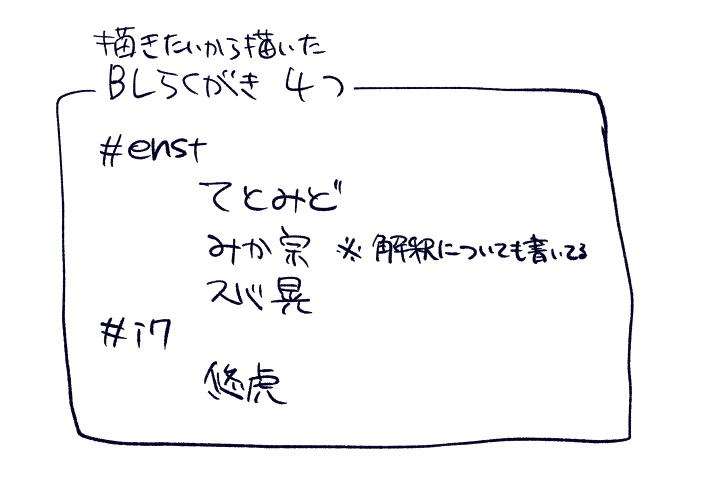 描きたいから描いた
BLらくがき 4つ
#enst
てとみど
みか宗 ※解釈についても書いてる
スバ晃
#i7
悠虎